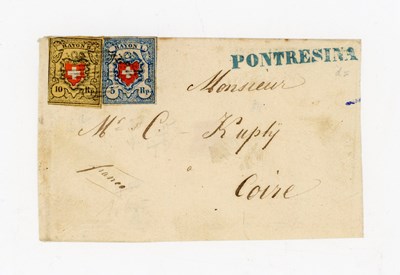 RAYON II
10 Rp.
RAYON I
5 Rp.
PONTRESINA
Monsieur
Mr C.
franco
Coire